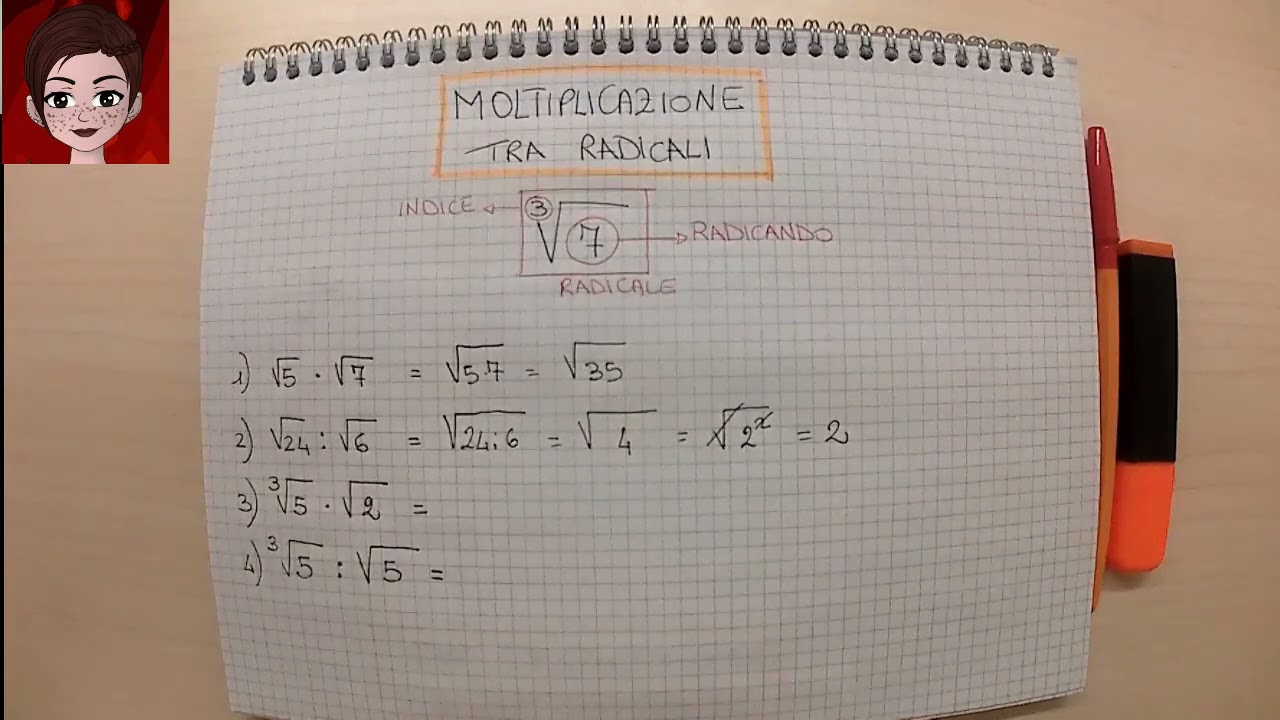 MOLTIPLICAZIONE
TRA RADICALI
INDICE ← ³√7 → RADICANDO
RADICALE
1) √5 · √7 = √5·7 = √35
2) √24 : √6 = √24:6 = √4 = √2² = 2
3) ³√5 · √2 =
4) ³√5 : √5 =